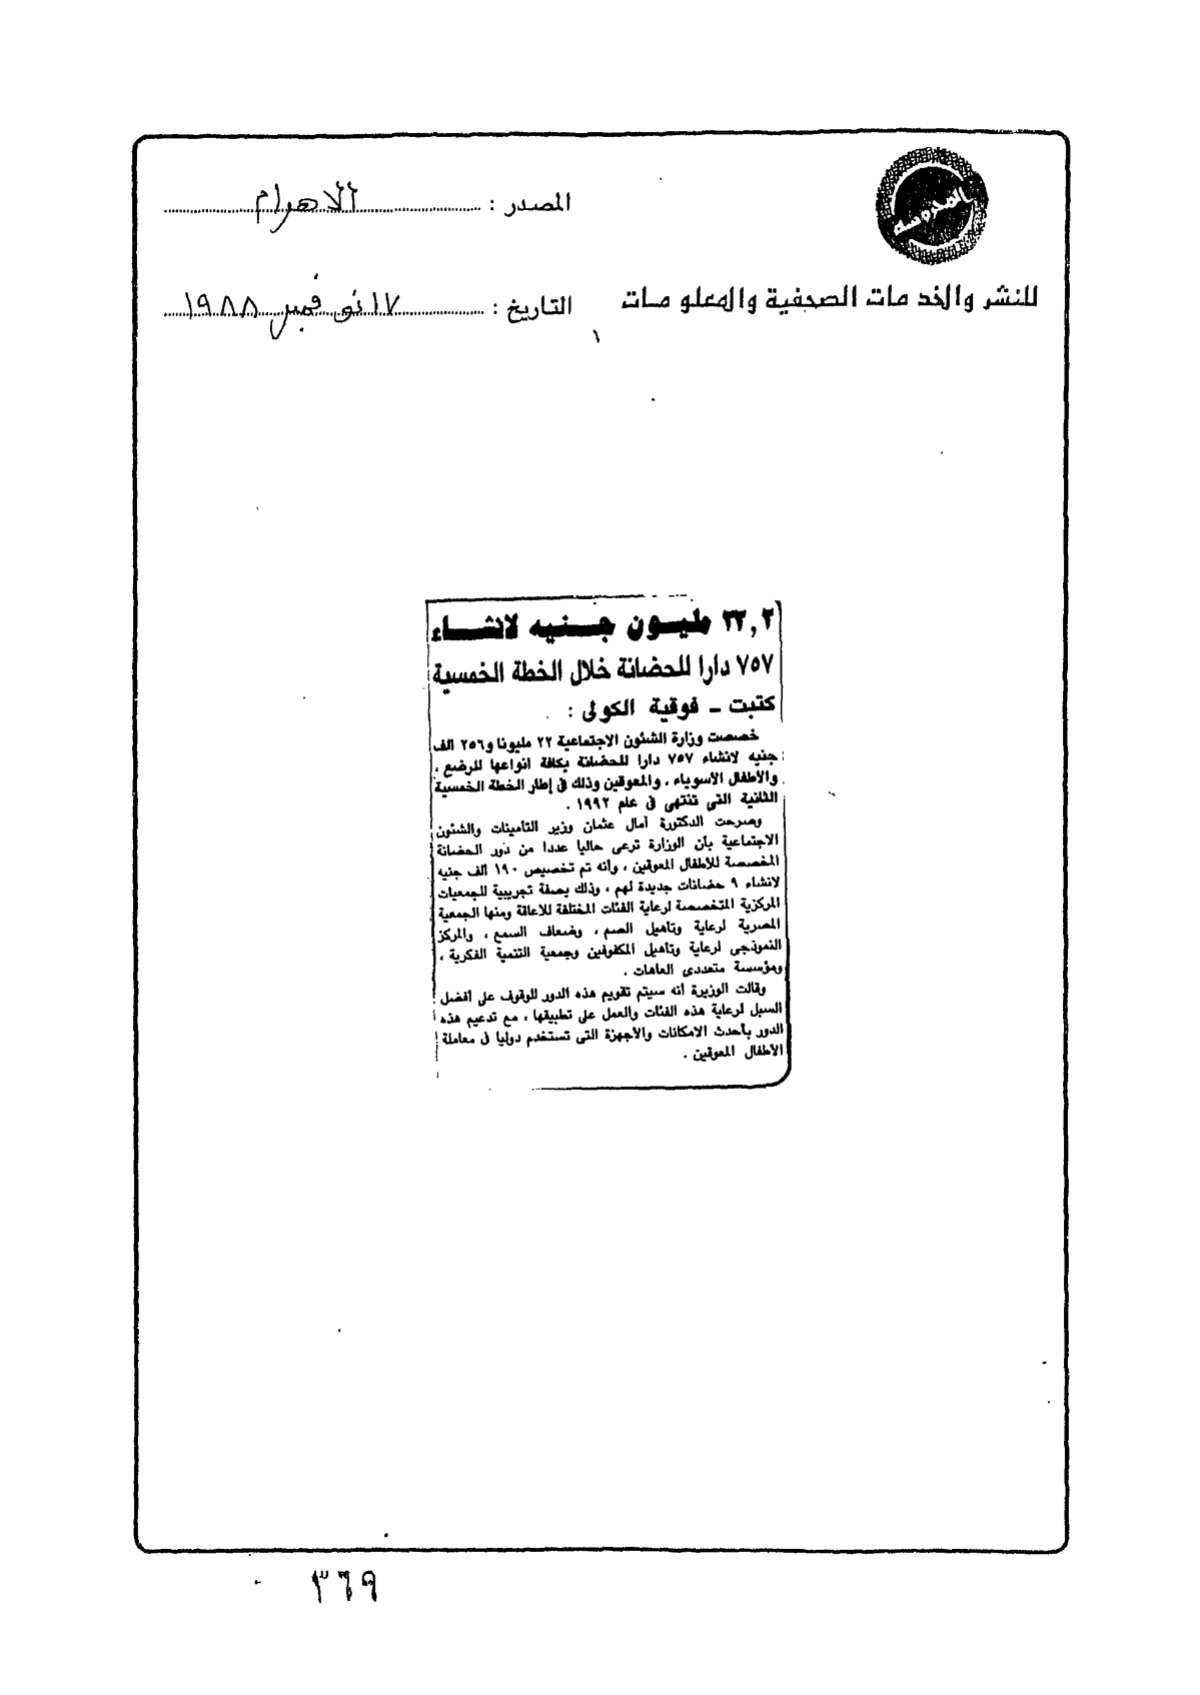 المحروسه
المصدر : الاهرام
للنشر والخدمات الصحفية والمعلومات
التاريخ : ١٧ نوفمبر ١٩٨٨
مليون جنيه لانشاء
٧٥٧ دارا للحضانة خلال الخطة الخمسية
كتبت ـ فوقية الكولى :
خصصت وزارة الشئون الاجتماعية ٢٢ مليونا و٢٥٦ الف
جنيه لانشاء ٧٥٧ دارا للحضانة بكافة انواعها للرضع ،
والأطفال الأسوياء ، والمعوقين وذلك فى إطار الخطة الخمسية
الثانية التى تنتهى فى عام ١٩٩٢ .
وصرحت الدكتورة آمال عثمان وزير التأمينات والشئون
الاجتماعية بأن الوزارة ترعى حاليا عددا من دور الحضانة
المخصصة للأطفال المعوقين ، وأنه تم تخصيص ١٩٠ ألف جنيه
لانشاء ٩ حضانات جديدة لهم ، وذلك بصفة تجريبية للجمعيات
المركزية المتخصصة لرعاية الفئات المختلفة للاعاقة ومنها الجمعية
المصرية لرعاية وتأهيل الصم ، وضعاف السمع ، والمركز
النموذجى لرعاية وتأهيل المكفوفين وجمعية التنمية الفكرية ،
ومؤسسة متعددى العاهات .
وقالت الوزيرة أنه سيتم تقويم هذه الدور للوقوف على أفضل
السبل لرعاية هذه الفئات والعمل على تطبيقها ، مع تدعيم هذه
الدور بأحدث الامكانات والأجهزة التى تستخدم دوليا فى معاملة
الأطفال المعوقين .
٣٦٩